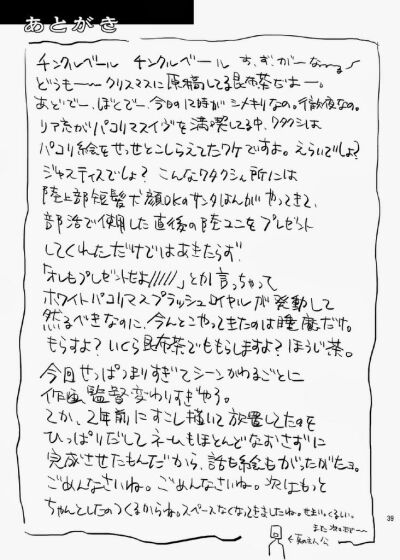 あとがき
チンクルベール チンクルベール す、ずがーなーる〜
どうもーークリスマスに原稿してる昆布茶だよー。
あどでー、ぼどでー、今日の12時がシメキリなの。徹夜なの。
リア充がパコリマスイヴを満喫してる中、ワタクシは
パコリ絵をせっせとこしらえてたワケですよ。えらいでしょ?
ジャスティスでしょ? こんなワタクシん所には
陸上部短髪犬顔OKのサンタはんがやってきて、
部活で使用した直後の陸ユニをプレゼント
してくれただけではあきたらず
「オレもプレゼントだよ/////」とか言っちゃって
ホワイトパコリマスプラッシュロイヤルが発動して
然るべきなのに、今んとこやってきたのは睡魔だけ。
もらすよ?いくら昆布茶でももらしますよ?ほうじ茶。
今回せっぱつまりすぎてシーンがわるごとに
作画監督変わりすぎやろ。
てか、2年前にすこし描いて放置してたのを
ひっぱりだしてネームもほとんどなおさずに
完成させたもんだから、話も絵もガッタガタョ。
ごめんなさいね。ごめんなさいね。次はもっと
ちゃんとしたのつくるからね。スペースなくなってきましたね。せまい。くるしい。
また次回でー
39